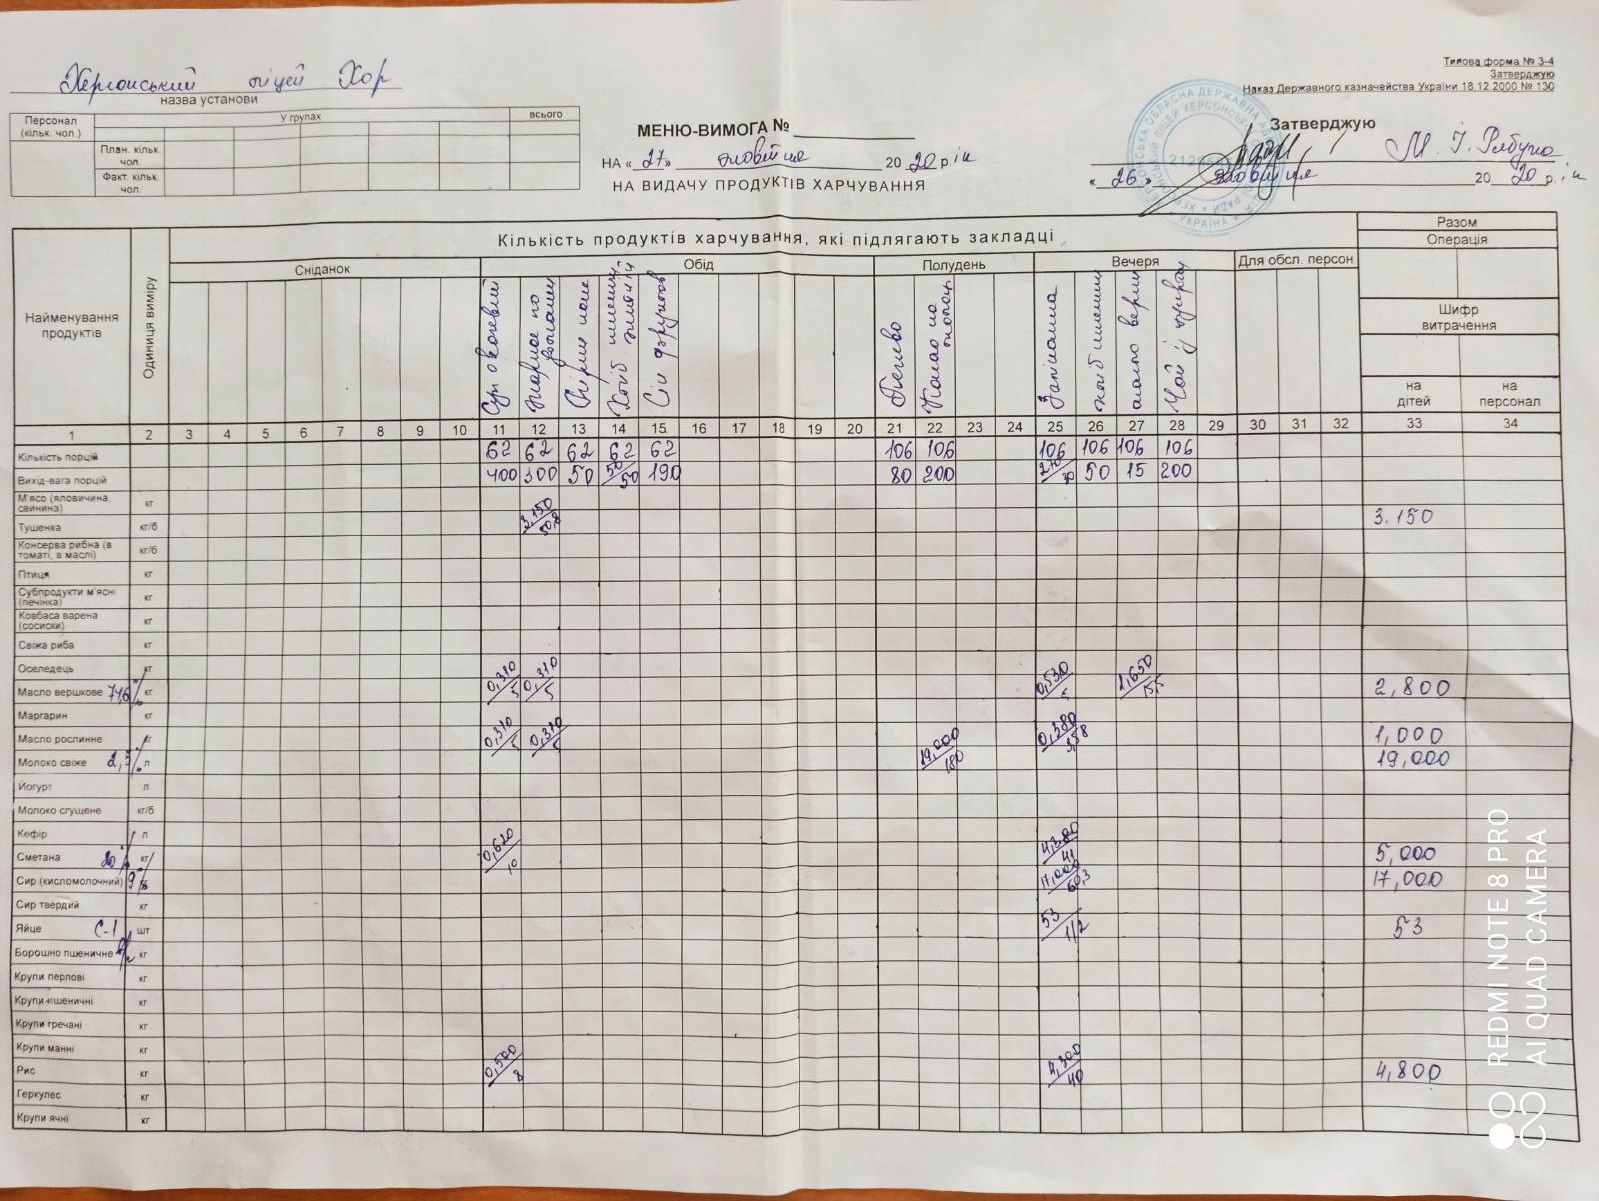 Типова форма № 3-4
Затверджую
Наказ Державного казначейства України 18.12.2000 № 130
Херсонський ліцей Хор
назва установи
Персонал (кільк. чол.) У групах всього
План. кільк. чол.
Факт. кільк. чол.
МЕНЮ-ВИМОГА №
НА « 27 » жовтня 20 20 р. ік
НА ВИДАЧУ ПРОДУКТІВ ХАРЧУВАННЯ
Затверджую
М. І.
« 26 » жовтня 20 20 р. ік
УКРАЇНА
Найменування продуктів
Одиниця виміру
Кількість продуктів харчування, які підлягають закладці
Разом
Операція
Сніданок Обід Полудень Вечеря Для обсл. персон.
Шифр витрачення
на дітей на персонал
Суп овочевий
Жаркое по
Хліб
Сік фруктов
Печиво
Какао на молоці
Запіканка
хліб пшенич
масло верш
Чай із цукром
1 2 3 4 5 6 7 8 9 10 11 12 13 14 15 16 17 18 19 20 21 22 23 24 25 26 27 28 29 30 31 32 33 34
Кількість порцій 62 62 62 62 62 106 106 106 106 106 106
Вихід-вага порцій 400 300 50 50/50 190 80 200 50 15 200
М'ясо (яловичина, свинина) кг
Тушенка кг/б 3,150/50,8 3.150
Консерва рибна (в томаті, в маслі) кг/б
Птиця кг
Субпродукти м'ясні (печінка) кг
Ковбаса варена (сосиски) кг
Свіжа риба кг
Оселедець кг
Масло вершкове кг 0,310/5 0,310/5 0,530/5 1,650/15,5 2,800
Маргарин кг
Масло рослинне кг 0,310/5 0,310/5 0,380/3,58 1,000
Молоко свіже 2,5% л 19,000/180 19,000
Йогурт л
Молоко сгущене кг/б
Кефір л
Сметана 20% кг 0,620/10 4,380/41 5,000
Сир (кисломолочний) 9% 17,000/60,3 17,000
Сир твердий кг
Яйце С-1 шт 53/1/2 53
Борошно пшеничне кг
Крупи перлові кг
Крупи пшеничні кг
Крупи гречані кг
Крупи манні кг
Рис кг 0,500/8 4,300/40 4,800
Геркулес кг
Крупи ячні кг
REDMI NOTE 8 PRO
AI QUAD CAMERA